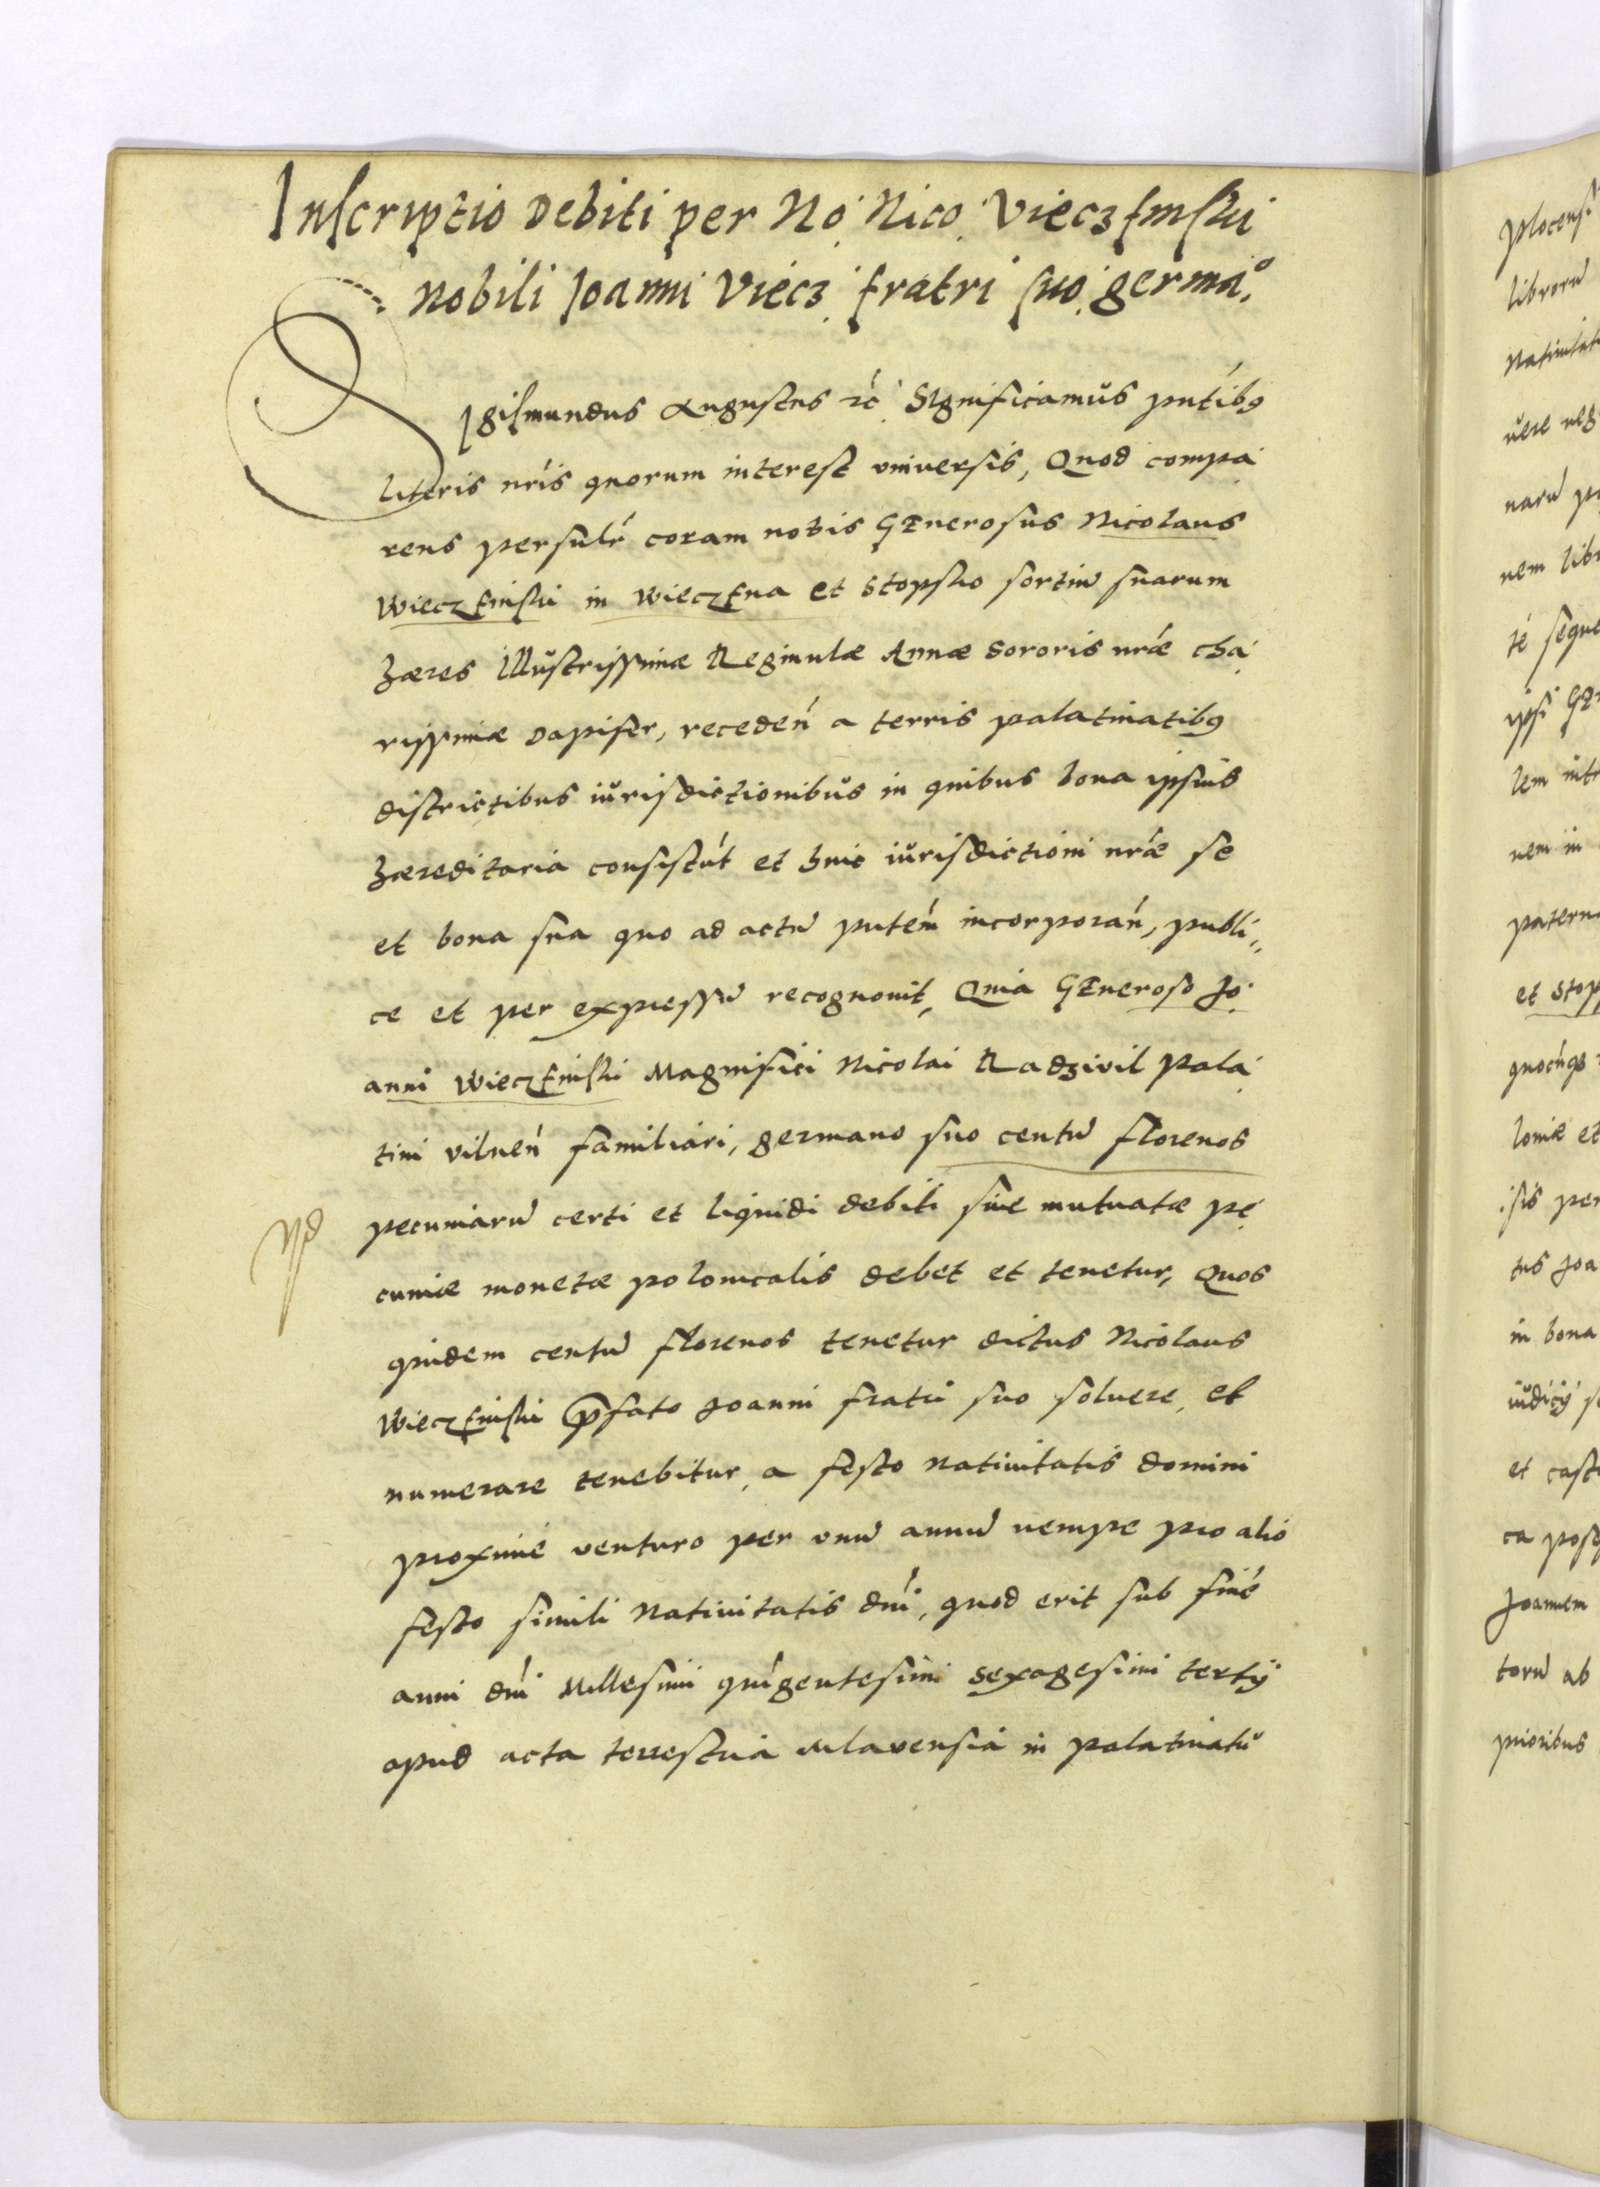 Inscriptio Debiti per No: Nico: Vieczfinski
Nobili Joanni Viecz: fratri suo germa:º
Sigismundus Augustus rc̃ Significamus pñtibꝯ
literis nr̃is quorum interest vniuersis, Quod compa
rens personalr̃ coram nobis GEnerosus Nicolaus
WieczEinski in WieczEna et Stopsko sortiũ suarum
hæres Illustrissimæ Reginulæ Annæ sororis nr̃æ cha
rissimæ Dapifer, recedeñ a terris palatinatibꝯ
districtibus iurisdictionibus in quibus bona ipsius
hæreditaria consistũt et huic iurisdictioni nr̃æ se
et bona sua quo ad actũ pñtem̃ incorporañ, publi„
ce et per expressũ recognouit, Quia GEneroso Jo
anni WieczEinski Magnifici Nicolai Radziwil Pala
tini vilneñ familiari, germano suo centũ florenos
pecuniarũ certi et liquidi debiti siue mutuatæ pe
cuniæ monetæ polonicalis debet et tenetur, Quos
quidem centũ florenos tenetur dictus Nicolaus
WieczEinski p̃fato Joanni fratri suo soluere, et
numerare tenebitur, a festo Natiuitatis domini
proxime venturo per vnũ annũ nempe pro alio
festo simili Natiuitatis dñi, quod erit sub finẽ
anni dñi Millesimi quĩgentesimi sexagesimi tertij
apud acta terrestria Mlauensia in palatinatu
Plocensi
librorũ
Natiuitat
uere neg
narũ p
nem lib
té seque
ipsi GE
lem int
nem in
patern
et Stop
quocũqꝫ
loniæ et
isis per
tus Joa
in bona
iudicij s
et cast
ca poss
Joannem
torũ ab
prioribus